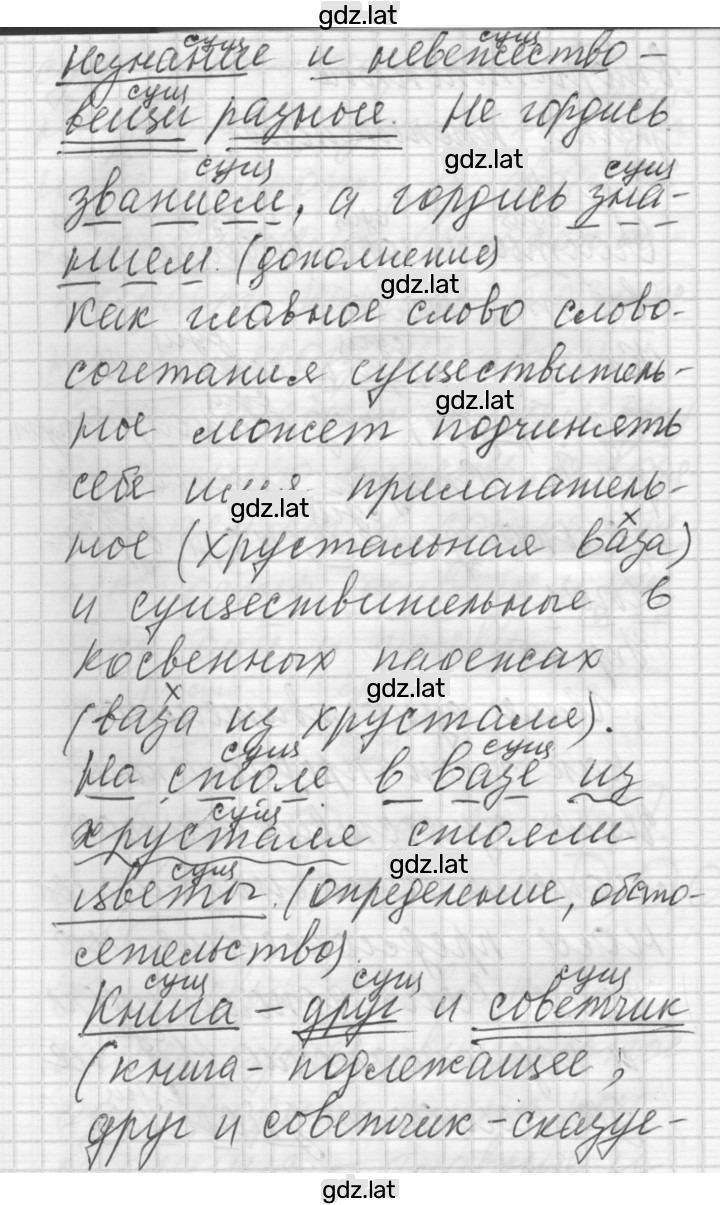 gdz.lat
сущ сущ
незнание и невежество –
сущ
вещи разные. Не гордись
gdz.lat
сущ сущ
званием, а гордись зна-
нием. (дополнение)
gdz.lat
Как главное слово слово-
сочетания существитель-
gdz.lat
ное может подчинять
себе имя прилагатель-
gdz.lat
х
ное (хрустальная ваза)
и существительные в
косвенных падежах
gdz.lat
х
(ваза из хрусталя).
сущ сущ
На столе в вазе из
сущ
хрусталя стояли
gdz.lat
сущ
цветы. (определение, обсто-
ятельство)
сущ сущ сущ
Книга – друг и советчик
(книга – подлежащее;
друг и советчик – сказуе-
gdz.lat